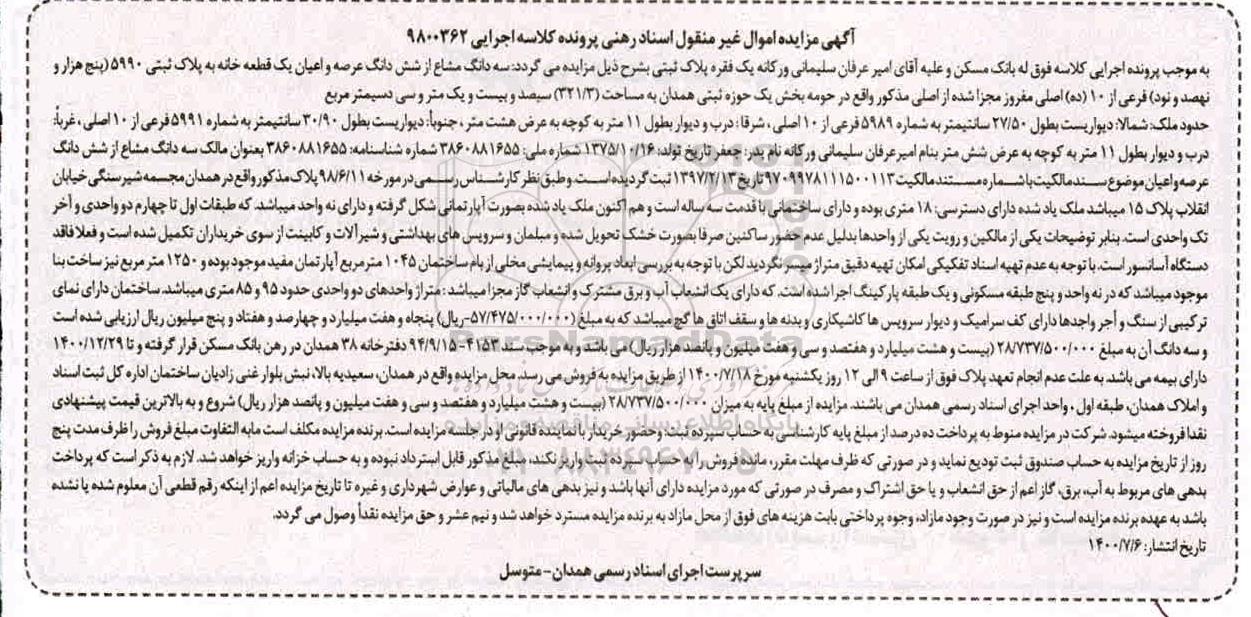 آگهی مزایده اموال غیر منقول اسناد رهنی پرونده کلاسه اجرایی ۹۸۰۰۳۶۲
به موجب پرونده اجرایی کلاسه فوق له بانک مسکن و علیه آقای امیر عرفان سلیمانی ورکانه یک فقره پلاک ثبتی بشرح ذیل مزایده می گردد: سه دانگ مشاع از شش دانگ عرصه و اعیان یک قطعه خانه به پلاک ثبتی ۵۹۹۰ (پنج هزار و
نهصد و نود) فرعی از ۱۰ (ده) اصلی مفروز مجزا شده از اصلی مذکور واقع در حومه بخش یک حوزه ثبتی همدان به مساحت (۳۲۱/۳) سیصد و بیست و یک متر و سی دسیمتر مربع
حدود ملک: شمالا: دیواریست بطول ۲۷/۵۰ سانتیمتر به شماره ۵۹۸۹ فرعی از ۱۰ اصلی ، شرقا: درب و دیوار بطول ۱۱ متر به کوچه به عرض هشت متر ، جنوباً: دیواریست بطول ۳۰/۹۰ سانتیمتر به شماره ۵۹۹۱ فرعی از ۱۰ اصلی ، غرباً:
درب و دیوار بطول ۱۱ متر به کوچه به عرض شش متر بنام امیر عرفان سلیمانی ورکانه نام پدر: جعفر تاریخ تولد: ۱۳۷۵/۱۰/۱۶ شماره ملی: ۳۸۶۰۸۸۱۶۵۵ شماره شناسنامه: ۳۸۶۰۸۸۱۶۵۵ بعنوان مالک سه دانگ مشاع از شش دانگ
عرصه و اعیان موضوع سند مالکیت با شماره مستند مالکیت ۹۷۰۹۹۷۸۱۱۱۵۰۰۱۱۳ تاریخ ۱۳۹۷/۲/۱۳ ثبت گردیده است. و طبق نظر کارشناس رسمی در مورخه ۹۸/۶/۱۱ پلاک مذکور واقع در همدان مجسمه شیر سنگی خیابان
انقلاب پلاک ۱۵ میباشد ملک یاد شده دارای دسترسی: ۱۸ متری بوده و دارای ساختمانی با قدمت سه ساله است و هم اکنون ملک یاد شده بصورت آپارتمانی شکل گرفته و دارای نه واحد میباشد. که طبقات اول تا چهارم دو واحدی و آخر
تک واحدی است. بنابر توضیحات یکی از مالکین و رویت یکی از واحدها بدلیل عدم حضور ساکنین صرفا بصورت خشک تحویل شده و مبلمان و سرویس های بهداشتی و شیرآلات و کابینت از سوی خریداران تکمیل شده است و فعلا فاقد
دستگاه آسانسور است. با توجه به عدم تهیه اسناد تفکیکی امکان تهیه دقیق متراژ میسر نگردید لکن با توجه به بررسی ابعاد پروانه و پیمایشی محلی از بام ساختمان ۱۰۴۵ متر مربع آپارتمان مفید موجود بوده و ۱۲۵۰ متر مربع نیز ساخت بنا
موجود میباشد که در نه واحد و پنج طبقه مسکونی و یک طبقه پارکینگ اجرا شده است. که دارای یک انشعاب آب و برق مشترک و انشعاب گاز مجزا میباشد : متراژ واحدهای دو واحدی حدود ۹۵ و ۸۵ متری میباشد. ساختمان دارای نمای
ترکیبی از سنگ و آجر واحدها دارای کف سرامیک و دیوار سرویس ها کاشیکاری و بدنه ها و سقف اتاق ها گچ میباشد که به مبلغ (۵۷/۴۷۵/۰۰۰/۰۰۰-ریال) پنجاه و هفت میلیارد و چهارصد و هفتاد و پنج میلیون ریال ارزیابی شده است
و سه دانگ آن به مبلغ ۲۸/۷۳۷/۵۰۰/۰۰۰ (بیست و هشت میلیارد و هفتصد و سی و هفت میلیون و پانصد هزار ریال) می باشد و به موجب سند ۴۱۵۳-۹۴/۹/۱۵ دفترخانه ۳۸ همدان در رهن بانک مسکن قرار گرفته و تا ۱۴۰۰/۱۲/۲۹
دارای بیمه می باشد. به علت عدم انجام تعهد پلاک فوق از ساعت ۹ الی ۱۲ روز یکشنبه مورخ ۱۴۰۰/۷/۱۸ از طریق مزایده به فروش می رسد. محل مزایده واقع در همدان، سعیدیه بالا، نبش بلوار غنی زادیان ساختمان اداره کل ثبت اسناد
و املاک همدان، طبقه اول ، واحد اجرای اسناد رسمی همدان می باشند. مزایده از مبلغ پایه به میزان ۲۸/۷۳۷/۵۰۰/۰۰۰ (بیست و هشت میلیارد و هفتصد و سی و هفت میلیون و پانصد هزار ریال) شروع و به بالاترین قیمت پیشنهادی
نقدا فروخته میشود. شرکت در مزایده منوط به پرداخت ده درصد از مبلغ پایه کارشناسی به حساب سپرده ثبت وحضور خریدار یا نماینده قانونی او در جلسه مزایده است. برنده مزایده مکلف است مابه التفاوت مبلغ فروش را ظرف مدت پنج
روز از تاریخ مزایده به حساب صندوق ثبت تودیع نماید و در صورتی که ظرف مهلت مقرر، مانده فروش را به حساب سپرده ثبت واریز نکند، مبلغ مذکور قابل استرداد نبوده و به حساب خزانه واریز خواهد شد. لازم به ذکر است که پرداخت
بدهی های مربوط به آب، برق، گاز اعم از حق انشعاب و یا حق اشتراک و مصرف در صورتی که مورد مزایده دارای آنها باشد و نیز بدهی های مالیاتی و عوارض شهرداری و غیره تا تاریخ مزایده اعم از اینکه رقم قطعی آن معلوم شده یا نشده
باشد به عهده برنده مزایده است و نیز در صورت وجود مازاد، وجوه پرداختی بابت هزینه های فوق از محل مازاد به برنده مزایده مسترد خواهد شد و نیم عشر و حق مزایده نقداً وصول می گردد.
تاریخ انتشار: ۱۴۰۰/۷/۶
سرپرست اجرای اسناد رسمی همدان - متوسل